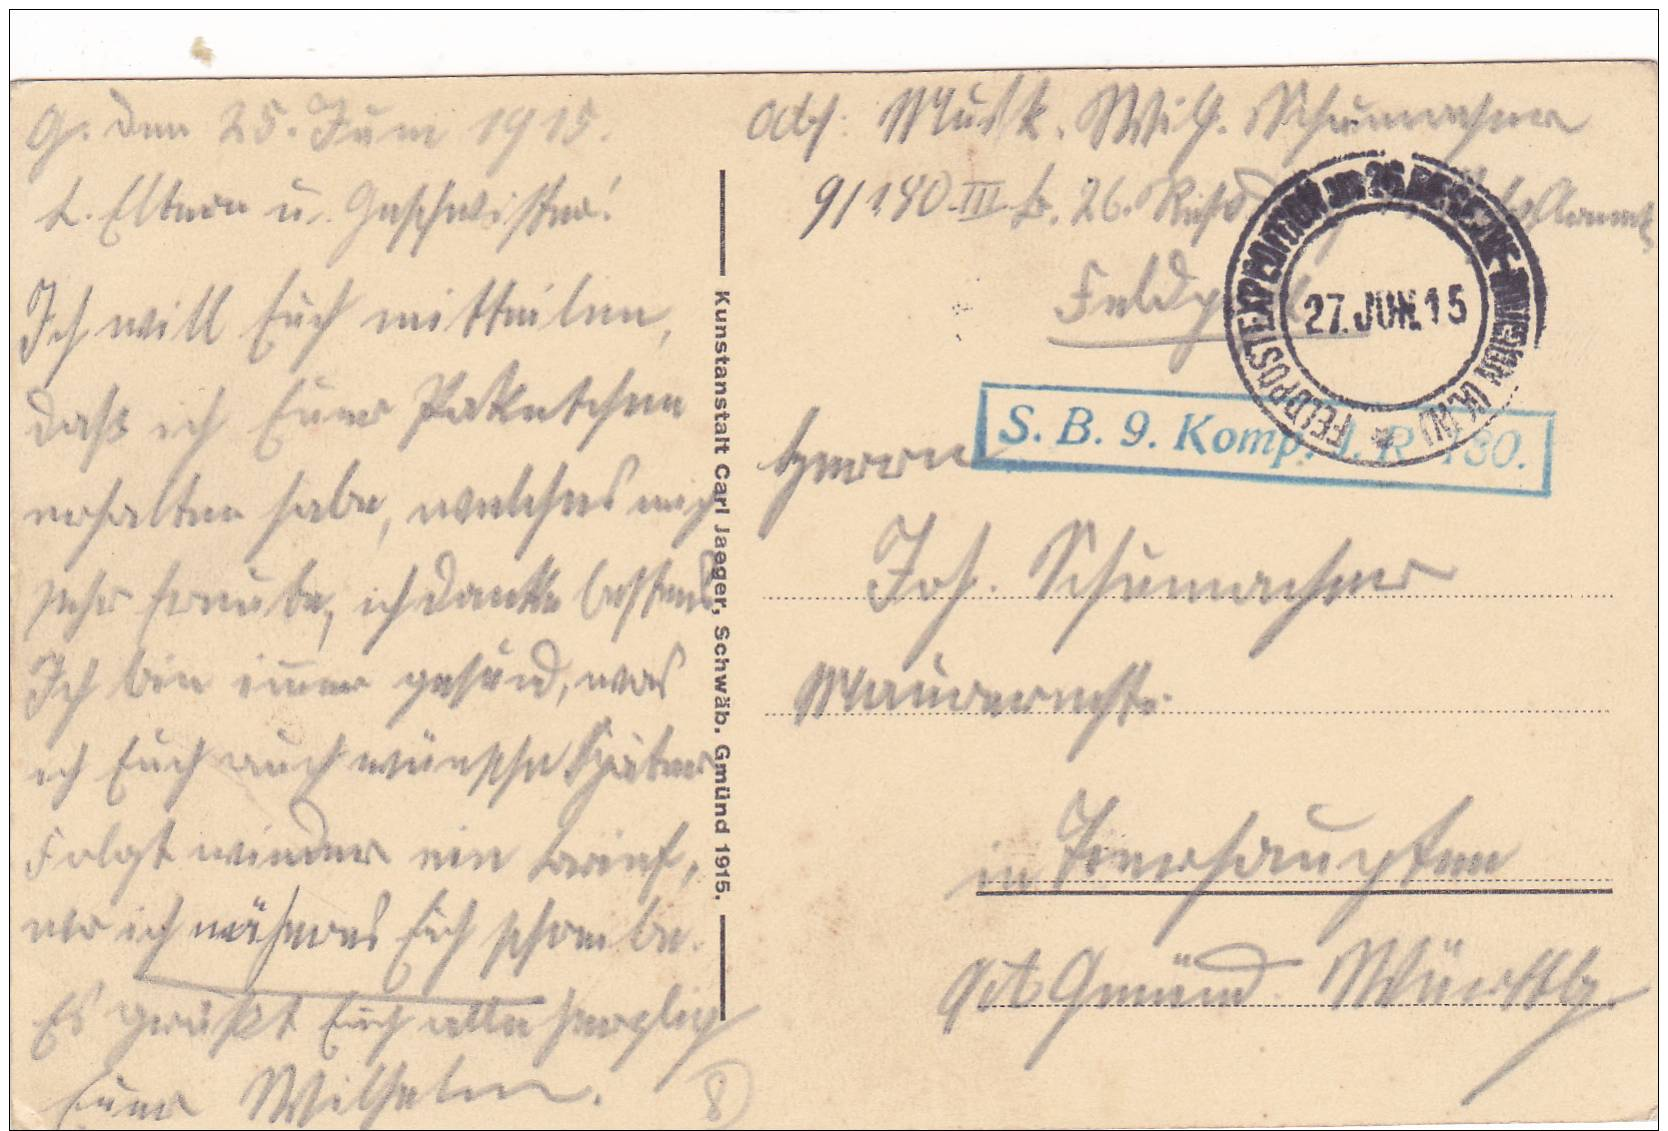 G. den 25. Juni 1915.
L. Eltern u. Geschwister!
Ich will Euch mitteilen,
daß ich Euer Paketchen
erhalten habe, welches mich
sehr freute, ich danke bestens
Ich bin immer gesund, was
ich Euch auch wünsche Später
folgt wieder ein Brief,
wo ich näheres Euch schreibe.
Es grüßt Euch alle herzlich
Euer Wilhelm.
8
Kunstanstalt Carl Jaeger, Schwäb. Gmünd 1915.
Abs: Musk. Wilh. Schumacher
9/180 III B. 26. Res. Armee
Feldpost
FELDPOSTEXPEDITION der 26 RESERVE-DIVISION (K.W.)
27. JUN. 15
S. B. 9. Komp. I. R 180.
Herrn
Joh. Schumacher
in
Gmünd Württbg